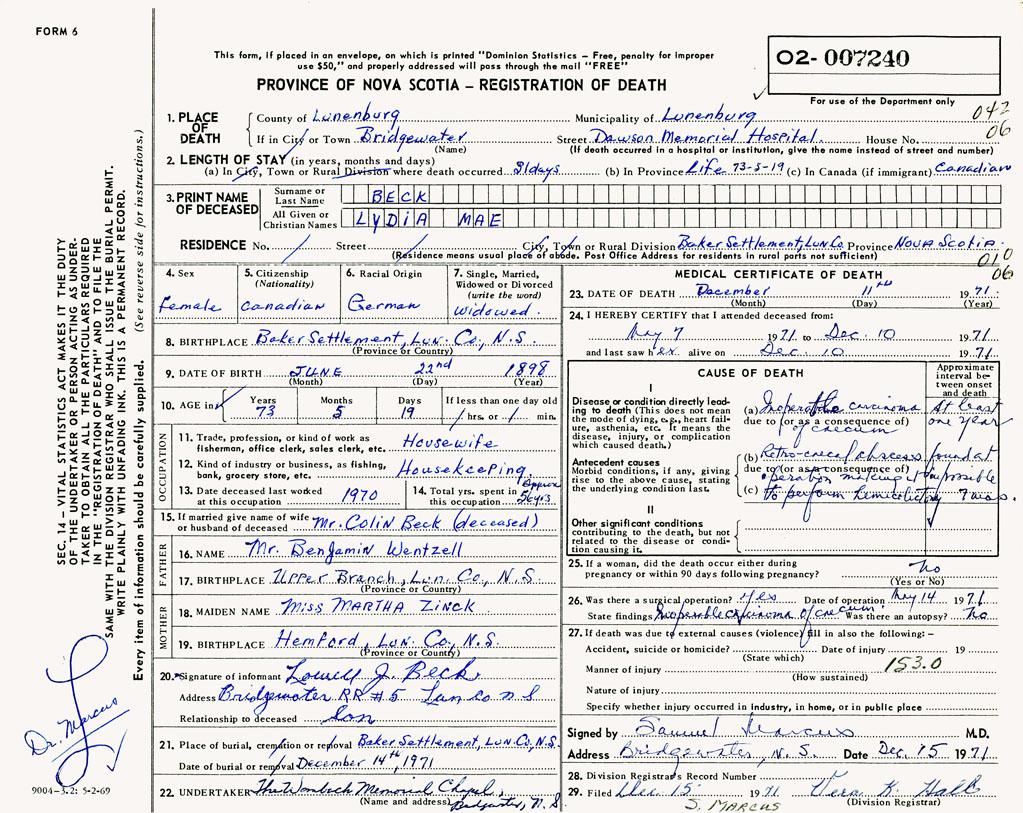 FORM 6
This form, if placed in an envelope, on which is printed "Dominion Statistics – Free, penalty for improper
use $50," and properly addressed will pass through the mail "FREE"
PROVINCE OF NOVA SCOTIA – REGISTRATION OF DEATH
02- 007240
For use of the Department only
042
06
1. PLACE OF DEATH
County of Lunenburg Municipality of Lunenburg
If in City or Town Bridgewater Street Dawson Memorial Hospital. House No.
(Name) (If death occurred in a hospital or institution, give the name instead of street and number)
2. LENGTH OF STAY (in years, months and days)
(a) In City, Town or Rural Division where death occurred 31days (b) In Province Life 73-5-19 (c) In Canada (if immigrant) Canadian
3. PRINT NAME OF DECEASED
Surname or Last Name BECK
All Given or Christian Names LYDIA MAE
RESIDENCE No. / Street / City, Town or Rural Division Baker Settlement, Lun Co. Province Nova Scotia.
(Residence means usual place of abode. Post Office Address for residents in rural parts not sufficient)
010
06
4. Sex
Female
5. Citizenship
(Nationality)
Canadian
6. Racial Origin
German
7. Single, Married,
Widowed or Divorced
(write the word)
Widowed.
8. BIRTHPLACE Baker Settlement, Lun. Co., N.S.
(Province or Country)
9. DATE OF BIRTH JUNE 22nd 1898
(Month) (Day) (Year)
10. AGE in
Years Months Days If less than one day old
73 5 19 / hrs. or / min.
OCCUPATION
11. Trade, profession, or kind of work as
fisherman, office clerk, sales clerk, etc. Housewife
12. Kind of industry or business, as fishing,
bank, grocery store, etc. Housekeeping
13. Date deceased last worked
at this occupation 1970
14. Total yrs. spent in
this occupation Approx 56yrs
15. If married give name of wife
or husband of deceased Mr. Colin Beck (deceased)
FATHER
16. NAME Mr. Benjamin Wentzell
17. BIRTHPLACE Upper Branch, Lun. Co., N.S.
(Province or Country)
MOTHER
18. MAIDEN NAME Miss MARTHA ZINCK
19. BIRTHPLACE Hemford, Lun. Co., N.S.
(Province or Country)
20. Signature of informant Lowell J. Beck
Address Bridgewater RR #5 Lun Co N S
Relationship to deceased Son
21. Place of burial, cremation or removal Baker Settlement, Lun. Co., N.S.
Date of burial or removal December 14th, 1971
22. UNDERTAKER The Wamback Memorial Chapel,
(Name and address) Bridgewater, N.S
MEDICAL CERTIFICATE OF DEATH
23. DATE OF DEATH December 11th 1971.
(Month) (Day) (Year)
24. I HEREBY CERTIFY that I attended deceased from:
May 7 1971 to Dec. 10 1971
and last saw her alive on Dec. 10 1971
CAUSE OF DEATH
Approximate
interval be-
tween onset
and death
I
Disease or condition directly lead-
ing to death (This does not mean
the mode of dying, e.g., heart fail-
ure, asthenia, etc. It means the
disease, injury, or complication
which caused death.)
(a) Inoperable carcinoma
due to (or as a consequence of)
of caecum
At least
one year
Antecedent causes
Morbid conditions, if any, giving
rise to the above cause, stating
the underlying condition last.
(b) Retro-caecal abscess found at
due to (or as a consequence of)
operation making it impossible
(c) to perform hemicolectomy 7 mos.
II
Other significant conditions
contributing to the death, but not
related to the disease or condi-
tion causing it.
25. If a woman, did the death occur either during
pregnancy or within 90 days following pregnancy? No
(Yes or No)
26. Was there a surgical operation? Yes Date of operation May 14 1971
State findings Inoperable carcinoma of caecum Was there an autopsy? No
27. If death was due to external causes (violence) fill in also the following: –
Accident, suicide or homicide? Date of injury 19
(State which)
Manner of injury 153.0
(How sustained)
Nature of injury
Specify whether injury occurred in industry, in home, or in public place
Signed by Samuel Marcus M.D.
Address Bridgewater, N.S. Date Dec. 15 1971
28. Division Registrar's Record Number
29. Filed Dec. 15 1971 Vera K. Hall
S. MARCUS (Division Registrar)
SEC. 14 – VITAL STATISTICS ACT MAKES IT THE DUTY
OF THE UNDERTAKER OR PERSON ACTING AS UNDER-
TAKER TO OBTAIN ALL THE PARTICULARS REQUIRED
IN THE "REGISTRATION OF DEATH" AND TO FILE THE
SAME WITH THE DIVISION REGISTRAR WHO SHALL ISSUE THE BURIAL PERMIT.
WRITE PLAINLY WITH UNFADING INK. THIS IS A PERMANENT RECORD.
Every item of information should be carefully supplied. (See reverse side for instructions.)
Dr. Marcus
9004-3.2: 5-2-69